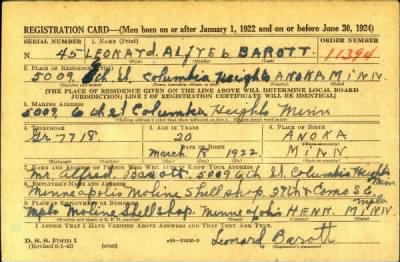 REGISTRATION CARD—(Men born on or after January 1, 1922 and on or before June 30, 1924)
SERIAL NUMBER 1. NAME (Print) ORDER NUMBER
N 45 LEONARD. ALFRED BAROTT. 11394
(First) (Middle) (Last)
2. PLACE OF RESIDENCE (Print)
5009 6th St. Columbia Heights ANOKA MINN.
[THE PLACE OF RESIDENCE GIVEN ON THE LINE ABOVE WILL DETERMINE LOCAL BOARD
JURISDICTION; LINE 2 OF REGISTRATION CERTIFICATE WILL BE IDENTICAL]
3. MAILING ADDRESS
5009 6th St Columbia Heights Minn
4. TELEPHONE 5. AGE IN YEARS 6. PLACE OF BIRTH
Gr 7718 20 ANOKA
DATE OF BIRTH
March 1922 MINN
7. NAME AND ADDRESS OF PERSON WHO WILL ALWAYS KNOW YOUR ADDRESS
Mr. Alfred. Barott. 5009 6th St. Columbia Heights Minn
8. EMPLOYER'S NAME AND ADDRESS
Minneapolis Moline Shell shop. 27th & Como S.E. mpls
9. PLACE OF EMPLOYMENT OR BUSINESS
Mpls Moline Shell shop. Minneapolis HENN. MINN.
I AFFIRM THAT I HAVE VERIFIED ABOVE ANSWERS AND THAT THEY ARE TRUE.
D. S. S. FORM 1
(Revised 6-1-42)
Leonard Barott